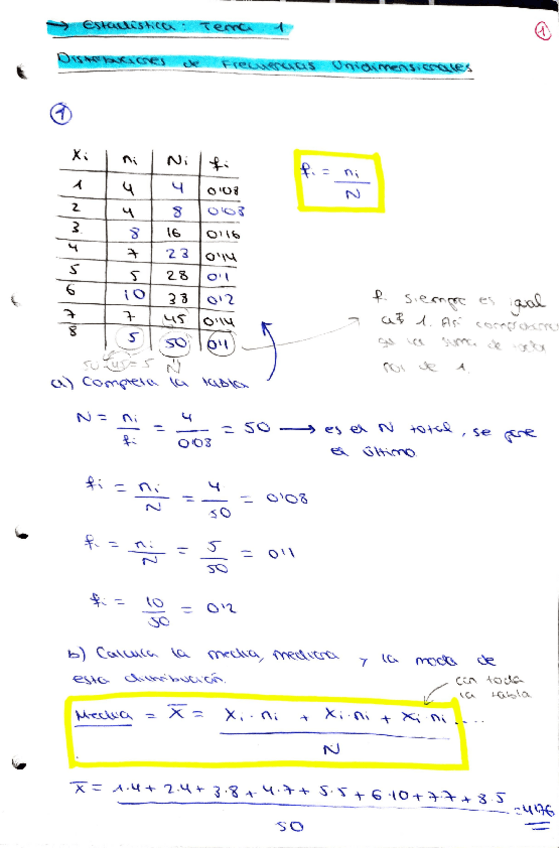 → Estadística: Tema 1
1
Distribuciones de Frecuencias Unidimensionales
1
Xi ni Ni fi
1 4 4 0'08
2 4 8 0'08
3 8 16 0'16
4 7 23 0'14
5 5 28 0'1
6 10 38 0'2
7 7 45 0'14
8 5 50 0'1
fi = ni / N
50-45=5 N
fi siempre es igual
a 1. Así
la suma de
de 1.
a) Completa la tabla
N = ni / fi = 4 / 0'08 = 50 → es el N total, se pone
el último
fi = ni / N = 4 / 50 = 0'08
fi = ni / N = 5 / 50 = 0'1
fi = 10 / 50 = 0'2
b) Calcula la media, mediana y la moda de
esta distribución.
con toda
la tabla
Media = X̄ = Xi·ni + Xi·ni + Xi·ni .... / N
X̄ = 1·4 + 2·4 + 3·8 + 4·7 + 5·5 + 6·10 + 7·7 + 8·5 / 50 = 4'76